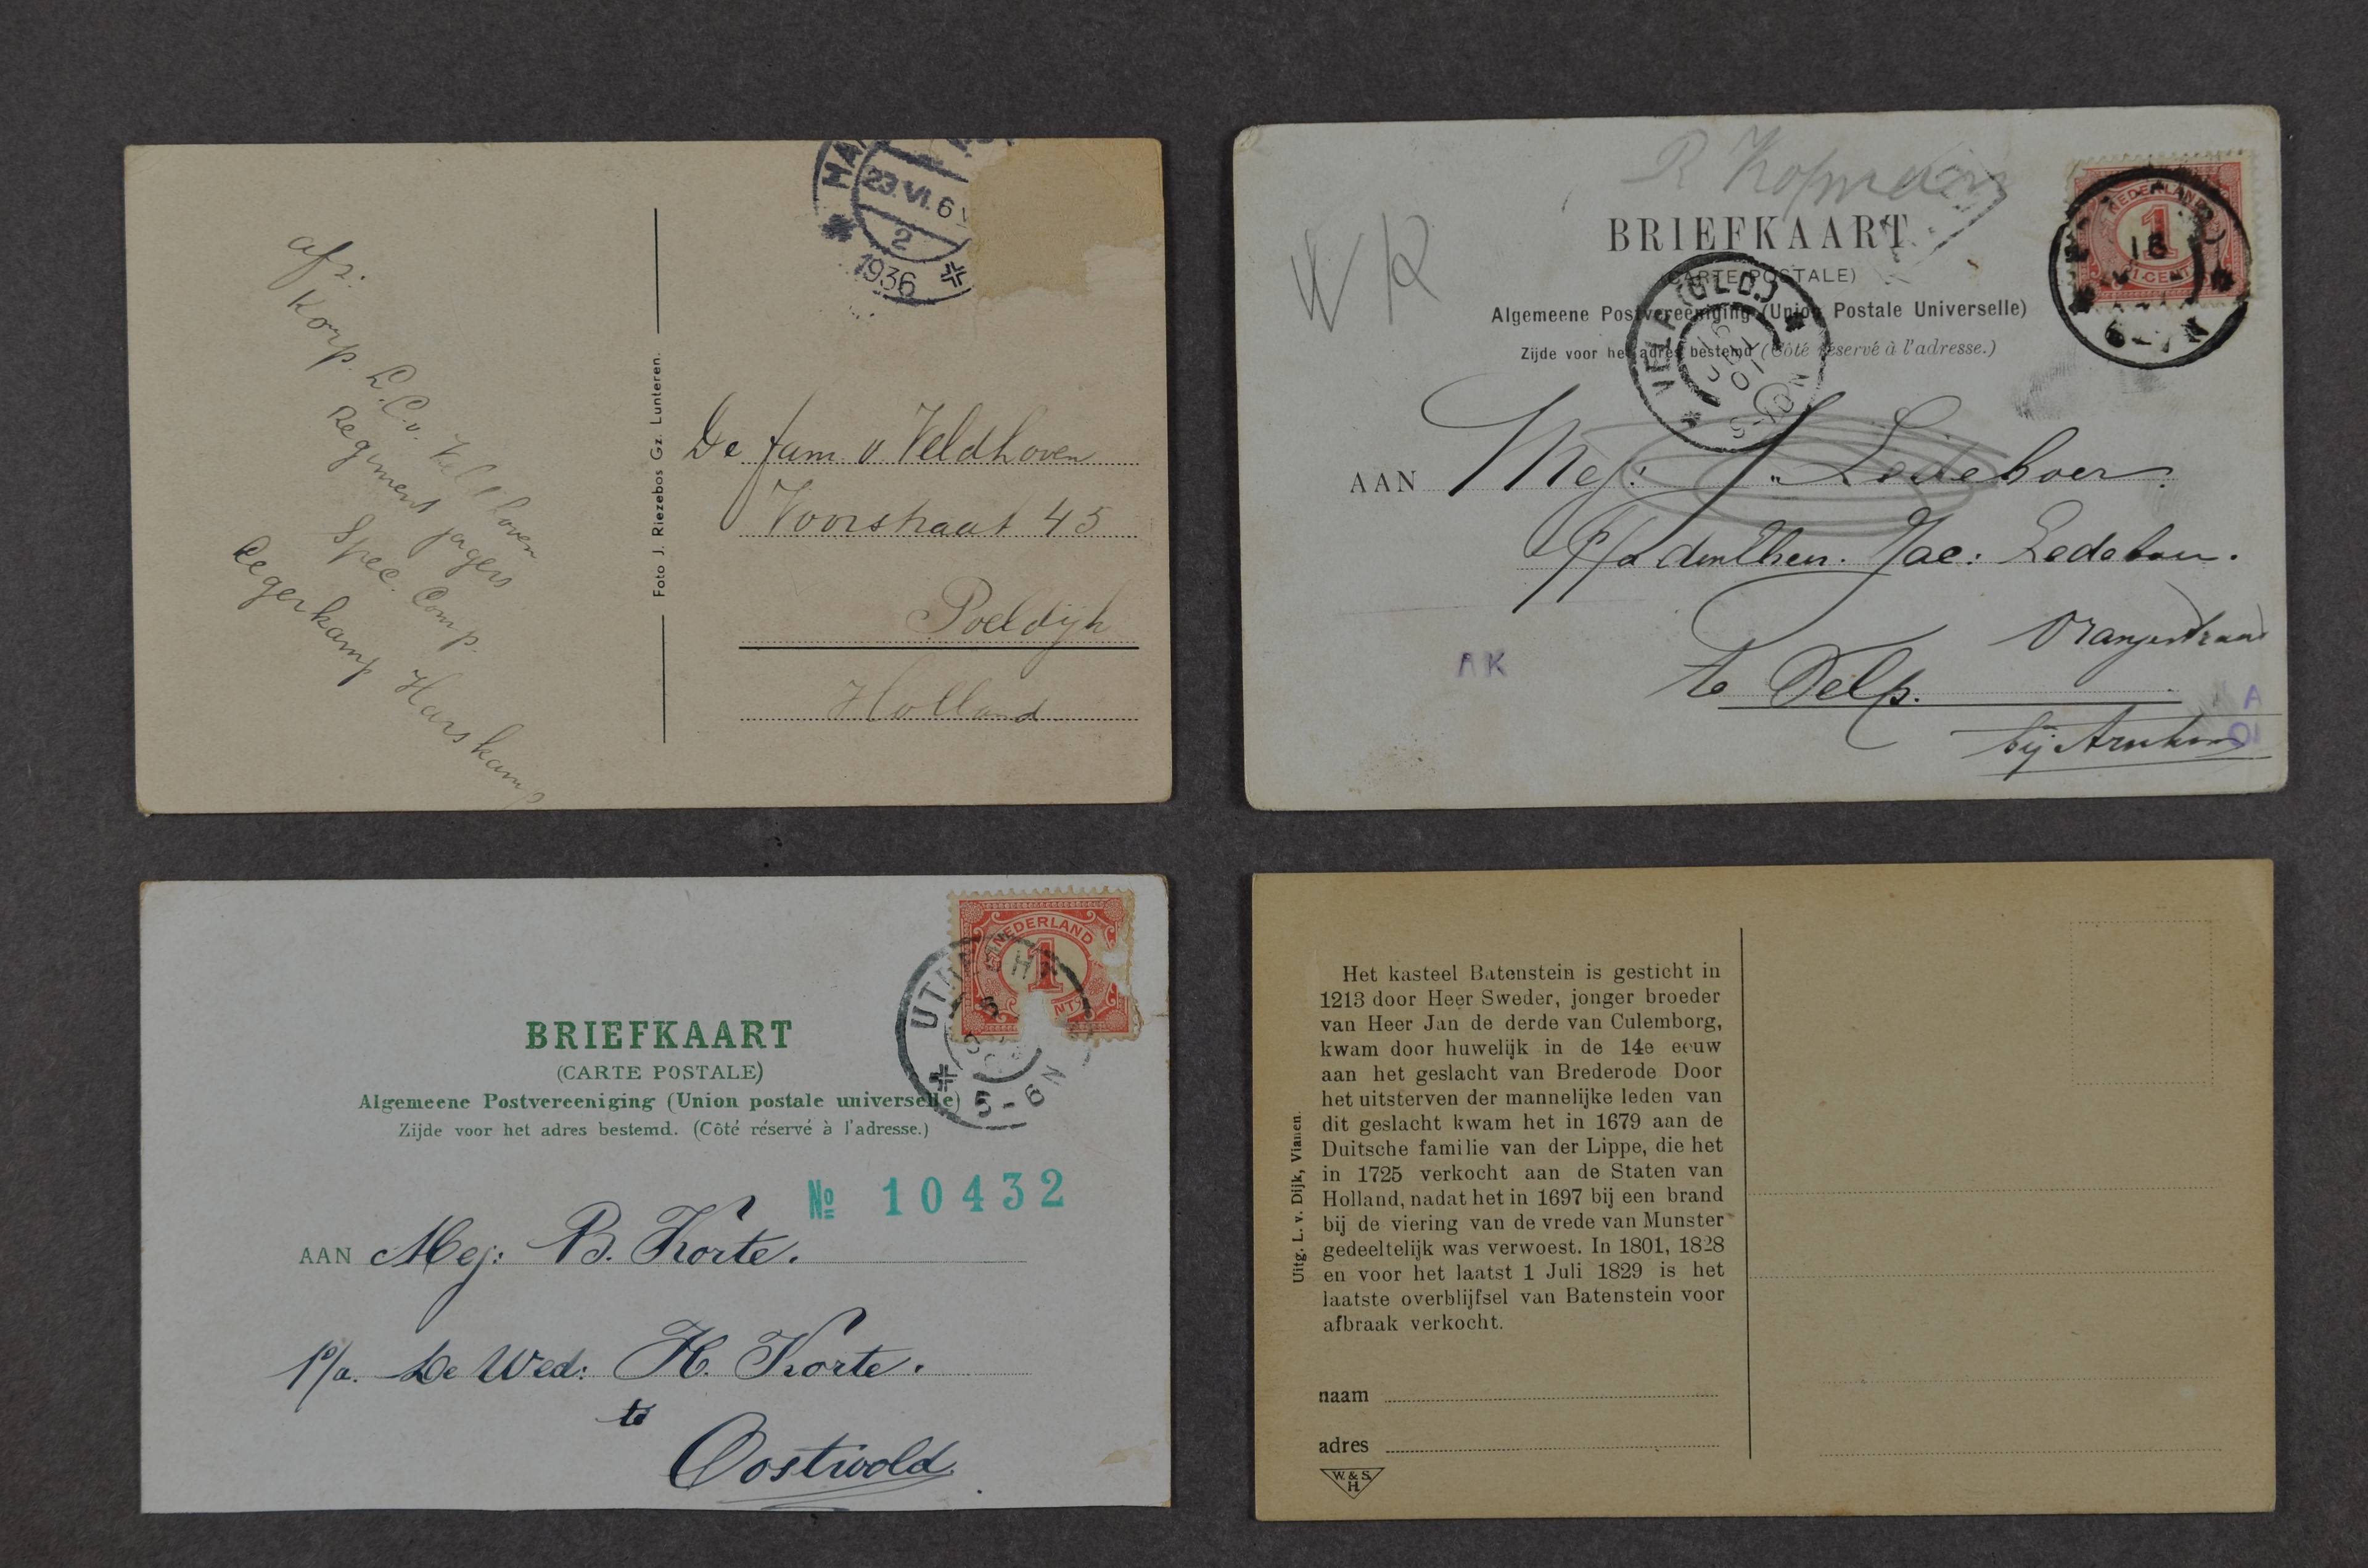 HA
23.VI.6
2
1936
afz:
Korp. L.C.v. Veldhoven
Regiment Jagers
Spec. Comp.
Legerkamp Harskamp
Foto J. Riezebos Gz. Lunteren.
De fam v. Veldhoven
Voorstraat 45
Poeldijk
Holland
W R
BRIEFKAART
(CARTE POSTALE)
Algemeene Postvereeniging (Union Postale Universelle)
Zijde voor het adres bestemd (Côté réservé à l'adresse.)
NEDERLAND
1
1 CENT
18
VELP (GLD.)
01
AAN Mej: J. Ledeboer.
P/a den Heer. Jac: Ledeboer.
Oranjestraat
te Velp.
bij Arnhem
AK
A
01
NEDERLAND
1
UTRECHT
5-6N
BRIEFKAART
(CARTE POSTALE)
Algemeene Postvereeniging (Union postale universelle)
Zijde voor het adres bestemd. (Côté réservé à l'adresse.)
№ 10432
AAN Mej: B. Korte.
P/a. De Wed: H. Korte.
te
Oostwold
Het kasteel Batenstein is gesticht in
1213 door Heer Sweder, jonger broeder
van Heer Jan de derde van Culemborg,
kwam door huwelijk in de 14e eeuw
aan het geslacht van Brederode Door
het uitsterven der mannelijke leden van
dit geslacht kwam het in 1679 aan de
Duitsche familie van der Lippe, die het
in 1725 verkocht aan de Staten van
Holland, nadat het in 1697 bij een brand
bij de viering van de vrede van Munster
gedeeltelijk was verwoest. In 1801, 1828
en voor het laatst 1 Juli 1829 is het
laatste overblijfsel van Batenstein voor
afbraak verkocht.
Uitg. L. v. Dijk, Vianen.
naam
adres
W. & S.
H